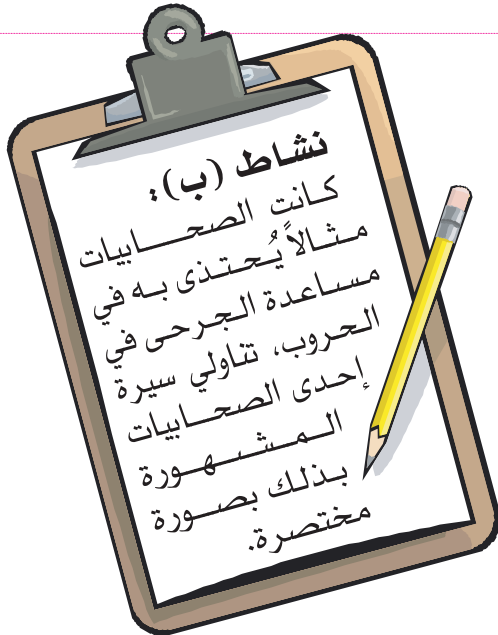 نشاط (ب):
كانت الصحابيات
مثالاً يُحتذى به في
مساعدة الجرحى في
الحروب، تناولي سيرة
إحدى الصحابيات
المشهورة
بذلك بصورة
مختصرة.